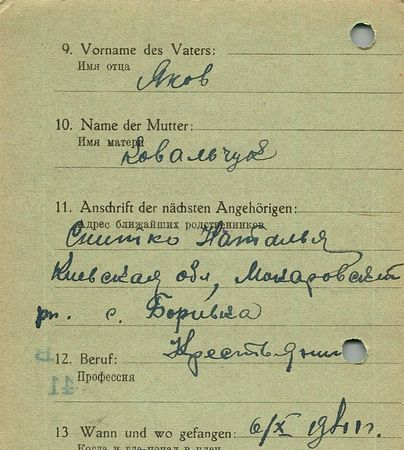 9. Vorname des Vaters:
Имя отца
Яков
10. Name der Mutter:
Имя матери
Ковальчук
11. Anschrift der nächsten Angehörigen:
Адрес ближайших родственников
Снитко Наталья
Киевская обл, Макаровский
рн. с. Боривка
12. Beruf: Крестьянин
Профессия
13 Wann und wo gefangen: 6/X 1941г.
Когда и где попал в плен